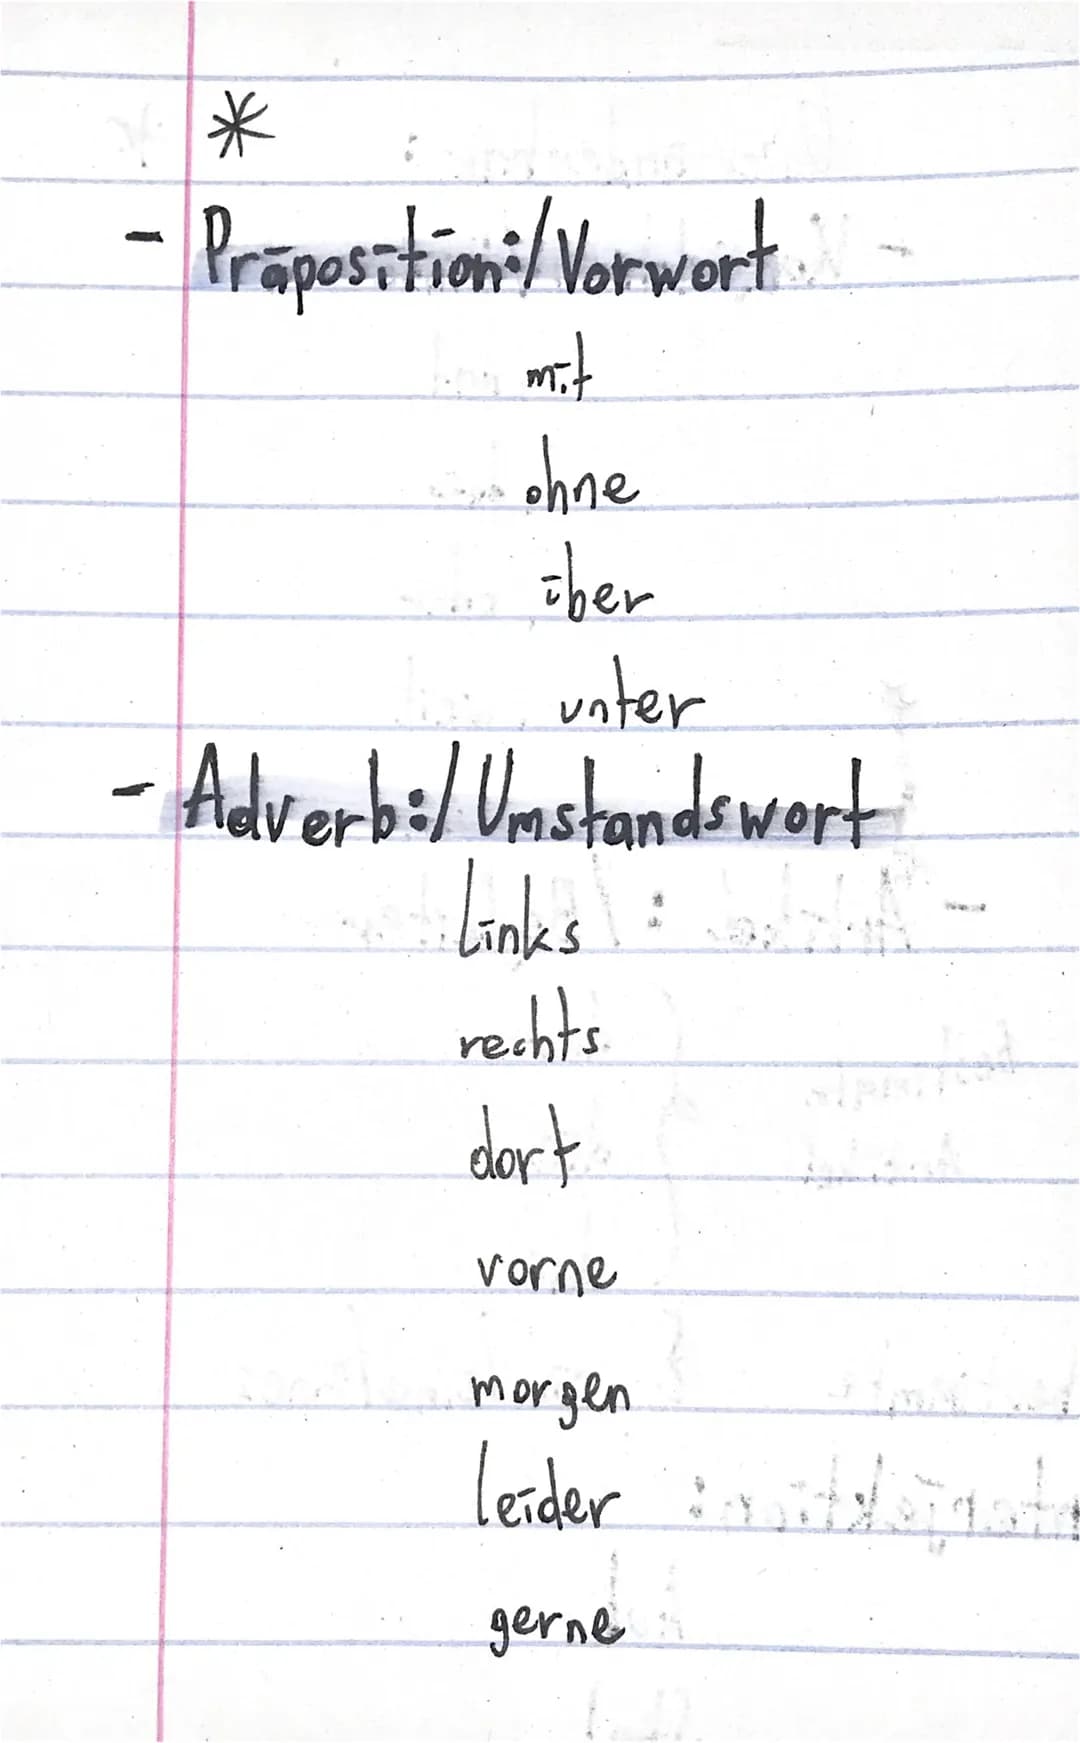 *
- Präposition:/Vorwort
mit
ohne
über
unter
- Adverb:/Umstandswort
Links
rechts
dort
vorne
morgen
leider
gerne